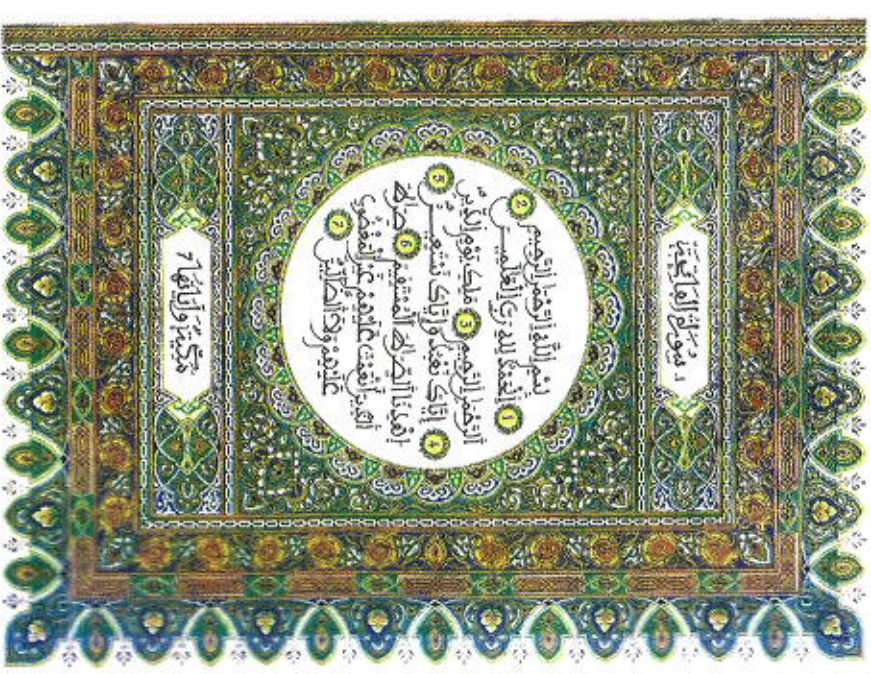 سُورَةُ الْفَاتِحَةِ
بِسْمِ اللَّهِ الرَّحْمَٰنِ الرَّحِيمِ
1 الْحَمْدُ لِلَّهِ رَبِّ الْعَٰلَمِينَ 2
الرَّحْمَٰنِ الرَّحِيمِ 3 مَٰلِكِ يَوْمِ الدِّينِ
4 إِيَّاكَ نَعْبُدُ وَإِيَّاكَ نَسْتَعِينُ 5
اهْدِنَا الصِّرَٰطَ الْمُسْتَقِيمَ 6 صِرَٰطَ
الَّذِينَ أَنْعَمْتَ عَلَيْهِمْ غَيْرِ الْمَغْضُوبِ
عَلَيْهِمْ وَلَا الضَّالِّينَ 7
مَكِّيَّةٌ وَآيَاتُهَا ٧